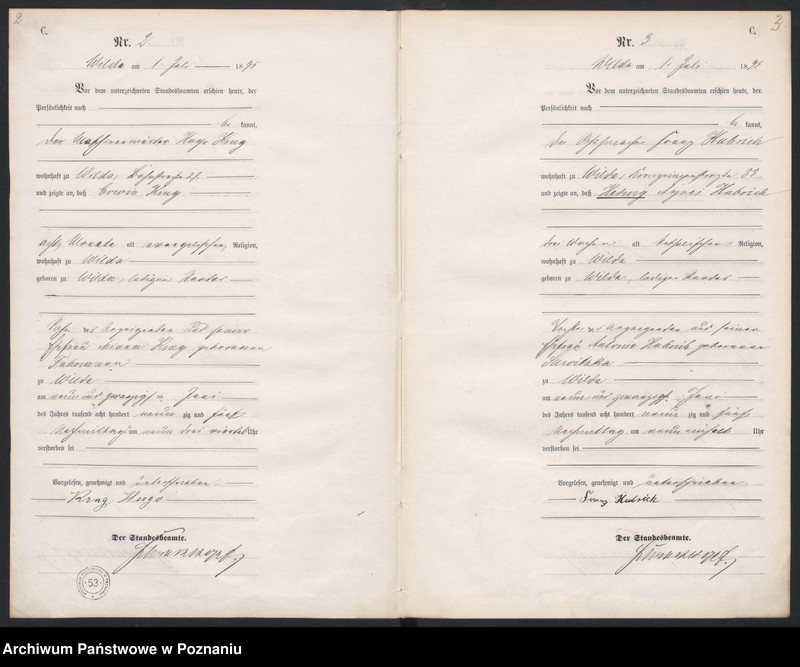 2
C.
Nr. 2.
Wilda am 1. Juli 1895
Vor dem unterzeichneten Standesbeamten erschien heute, der
Persönlichkeit nach
be kannt,
der Hugo Krug
wohnhaft zu Wilda,
und zeigte an, daß Erwin Krug
acht Monate alt evangelischer Religion,
wohnhaft zu Wilda
geboren zu Wilda, ledigen Standes
Sohn des Anzeigenden und seiner
Ehefrau Krug geborenen
zu Wilda
am neun und zwanzigsten Juni
des Jahres tausend acht hundert neun zig und fünf
Nachmittag um neun drei viertel Uhr
verstorben sei
Vorgelesen, genehmigt und unterschrieben
Krug Hugo
Der Standesbeamte.
53
3
C.
Nr. 3
Wilda am 1. Juli 1895
Vor dem unterzeichneten Standesbeamten erschien heute, der
Persönlichkeit nach
be kannt,
der Franz Hubrich
wohnhaft zu Wilda, Kronprinzenstraße 83
und zeigte an, daß Hedwig Agnes Hubrich
drei Wochen alt katholischer Religion,
wohnhaft zu Wilda
geboren zu Wilda, ledigen Standes
Tochter des Anzeigenden und seiner
Ehefrau Antonie Hubrich geborenen
zu Wilda
am neun und zwanzigsten Juni
des Jahres tausend acht hundert neun zig und fünf
Nachmittag um Uhr
verstorben sei
Vorgelesen, genehmigt und unterschrieben
Franz Hubrich
Der Standesbeamte.
Archiwum Państwowe w Poznaniu